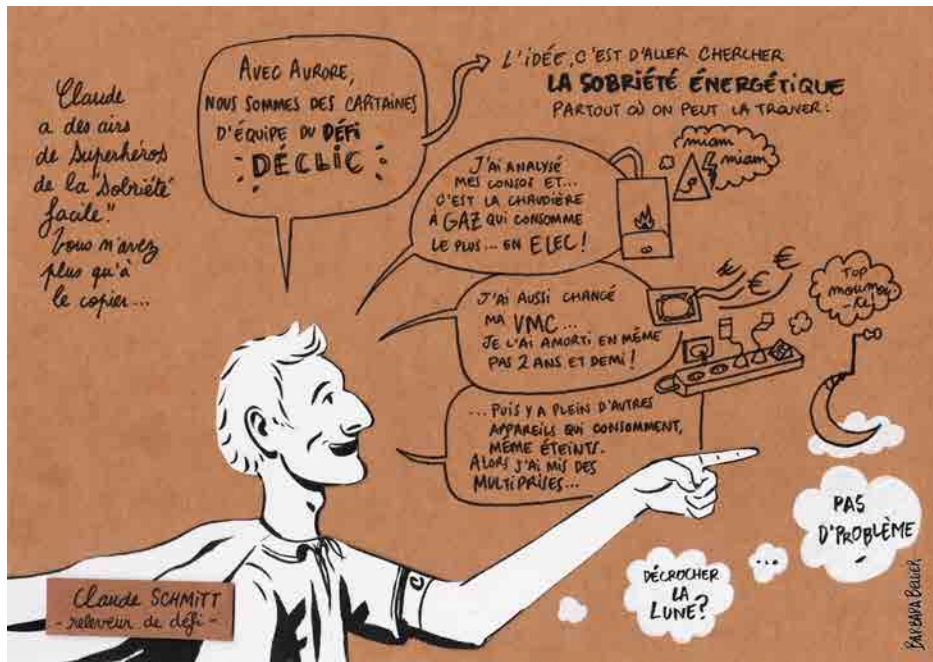 Claude
a des airs
de Superhéros
de la "Sobriété
facile."
Vous n'avez
plus qu'à
le copier...
AVEC AURORE,
NOUS SOMMES DES CAPITAINES
D'ÉQUIPE DU DÉFI
DÉCLIC
L'IDÉE, C'EST D'ALLER CHERCHER
LA SOBRIÉTÉ ÉNERGÉTIQUE
PARTOUT OÙ ON PEUT LA TROUVER:
J'AI ANALYSÉ
MES CONSOS ET...
C'EST LA CHAUDIÈRE
À GAZ QUI CONSOMME
LE PLUS... EN ELEC!
miam
miam
J'AI AUSSI CHANGÉ
MA VMC...
JE L'AI AMORTI EN MÊME
PAS 2 ANS ET DEMI!
€ € €
TOP
moumou
-te
...PUIS Y A PLEIN D'AUTRES
APPAREILS QUI CONSOMMENT,
MÊME ÉTEINTS.
ALORS J'AI MIS DES
MULTIPRISES...
DÉCROCHER
LA
LUNE?
...
PAS
D'PROBLÈME
Claude SCHMITT
- releveur de défi -
BARBARA BELLIER